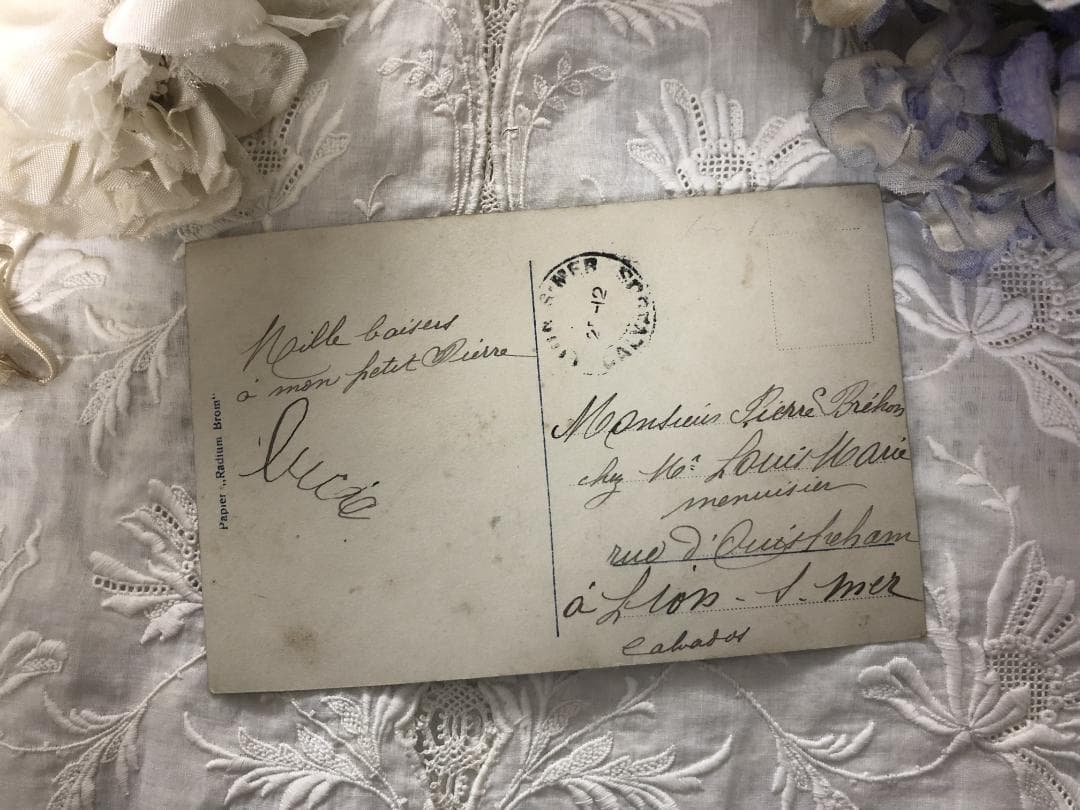 Mille baisers
à mon petit Pierre
Lucie
Papier „Radium Brom"
LION S. MER
CALVADOS
-12
Monsieur Pierre Bréhon
chez Mr Louis Marie
menuisier
rue d'Ouistreham
à Lion-S-mer
Calvados